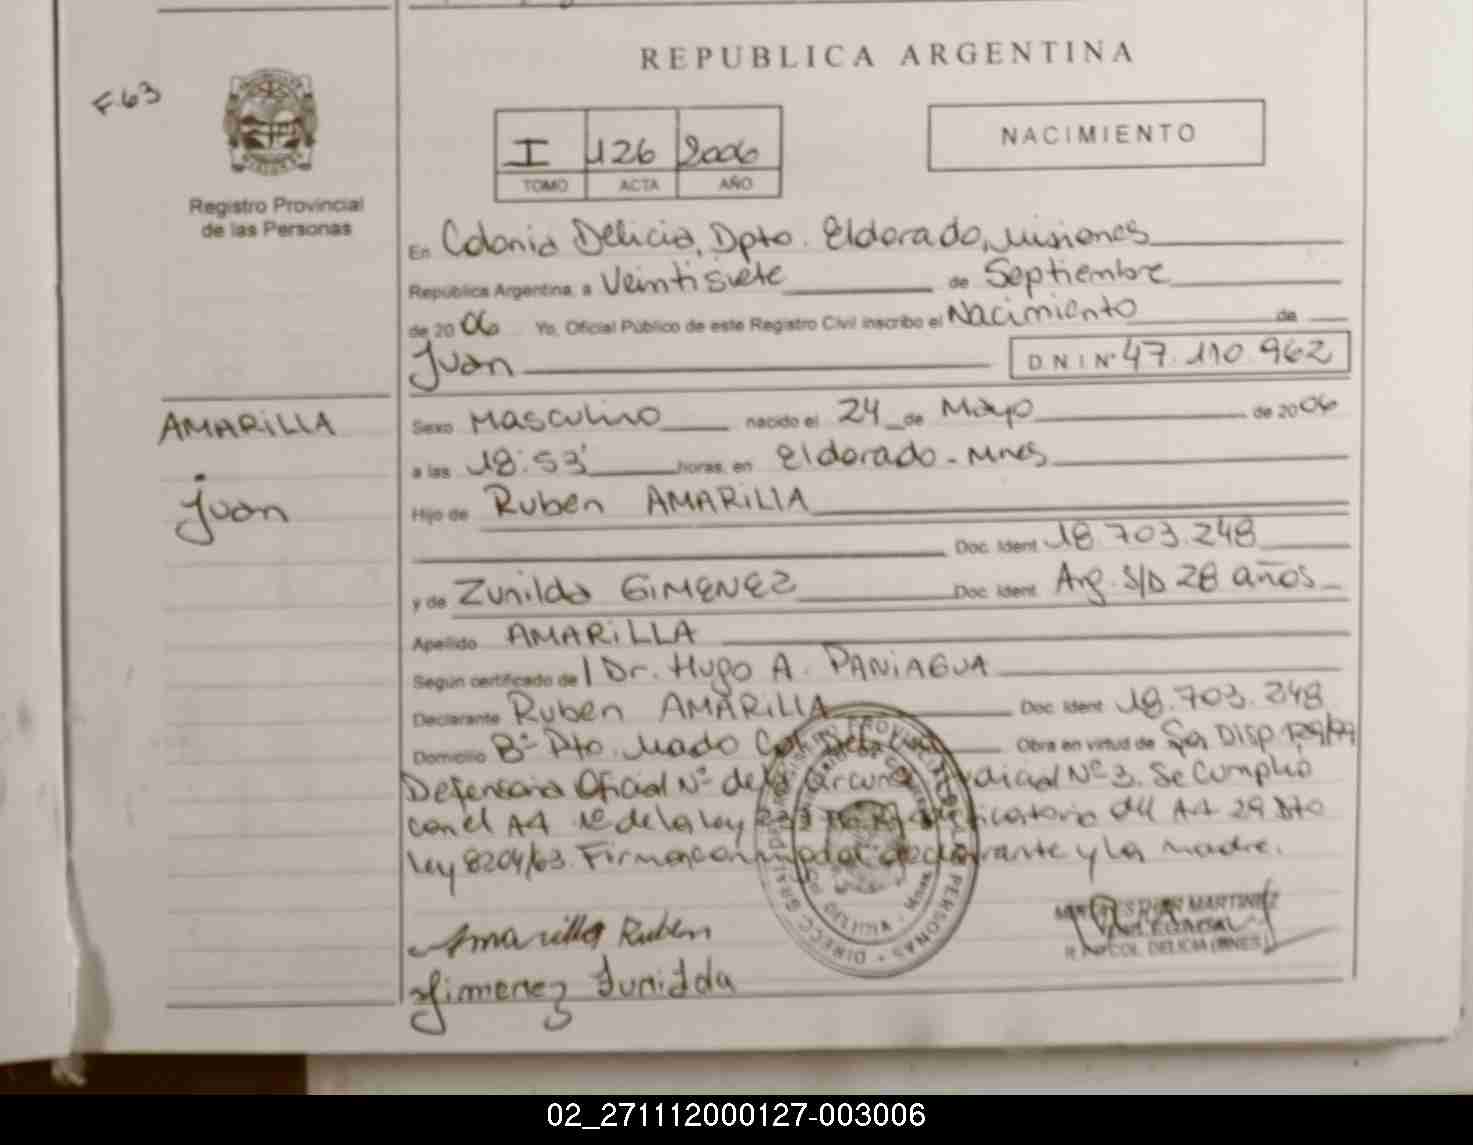 REPUBLICA ARGENTINA
F.63
I 126 2006
TOMO ACTA AÑO
NACIMIENTO
Registro Provincial
de las Personas
En Colonia Delicia, Dpto. Eldorado, Misiones
República Argentina, a Veintisiete de Septiembre
de 2006 Yo, Oficial Público de este Registro Civil inscribo el Nacimiento de
Juan D N I Nº 47.110.962
AMARILLA
Juan
Sexo Masculino nacido el 24 de Mayo de 2006
a las 18:53' horas, en Eldorado - Mnes
Hijo de Ruben AMARILLA
Doc. Ident 18.703.248
y de Zunilda GIMENEZ Doc. Ident. Arg. S/D 28 años
Apellido AMARILLA
Según certificado de Dr. Hugo A. PANIAGUA
Declarante Ruben AMARILLA Doc. Ident 18.703.248
Domicilio Bº Pto. Mado Col. Obra en virtud de Disp
Defensoria Oficial Nº de la Nº 3. Se Cumplio
con el Art 1º de la Ley del Art 29 Dto
Ley 8204/63. Firman declarante y la madre.
Amarilla Ruben
Gimenez Zunilda
MARTINEZ
COL. DELICIA (MNES)
02_271112000127-003006